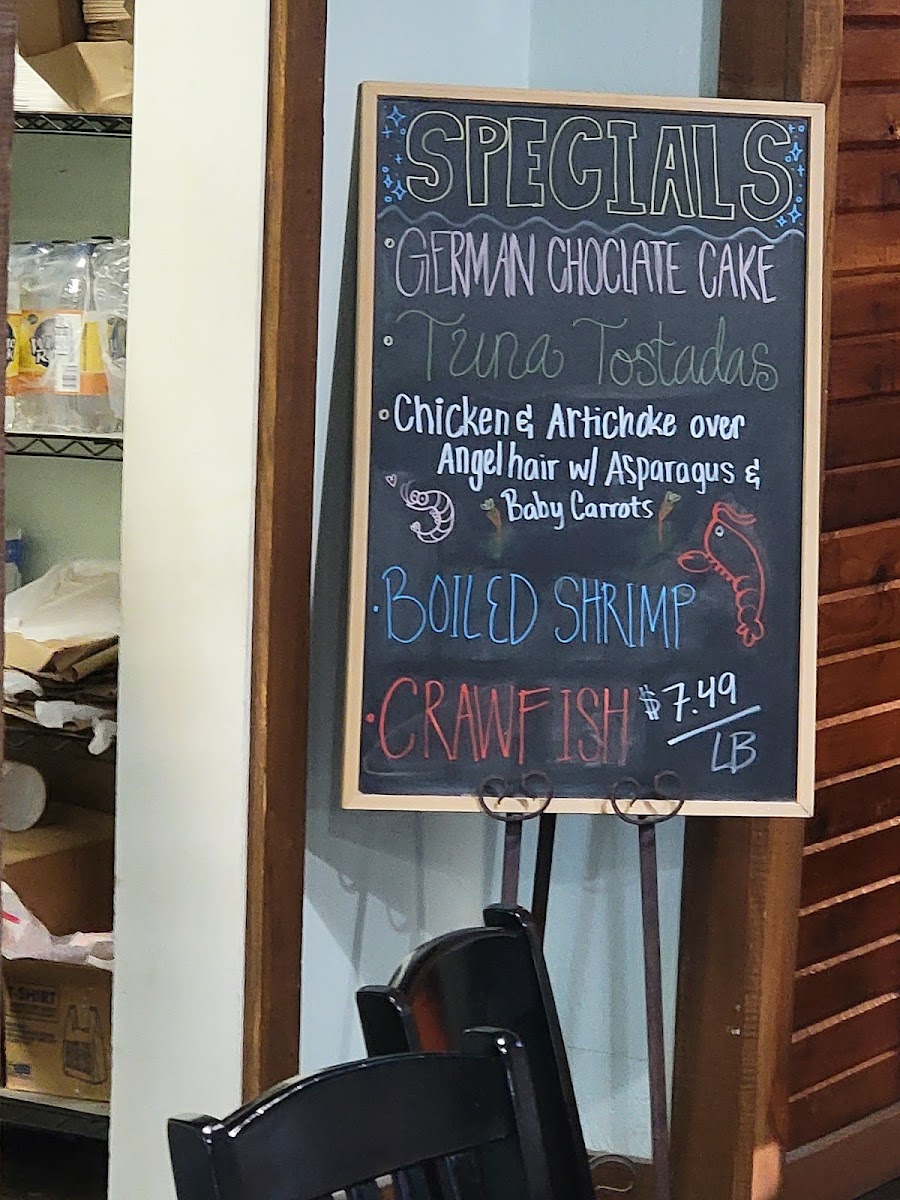 SPECIALS
GERMAN CHOCLATE CAKE
Tuna Tostadas
Chicken & Artichoke over
Angel hair w/ Asparagus &
Baby Carrots
BOILED SHRIMP
CRAWFISH $7.49
LB
T-SHIRT